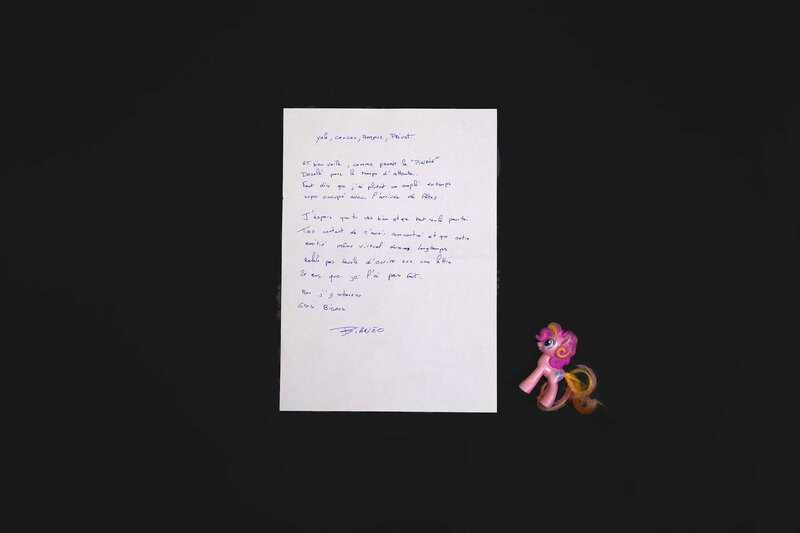 yolo, coucou, bonjour, Privet
Et bien voila, comme promis la "
Désolé pour le temps d'attente.
Faut dire que j'ai plutot un emploi du temps
super occupé avec l'arrivée de fêtes.
J'espère que tu vas bien et que tout roule pour toi
Très content de t'avoir rencontré et que notre
amitié même virtuel longtemps
pas facile d'écrire sur une lettre
20 ans que je l'ai pas fait.
Bon j'y retourne
Gros Bisous